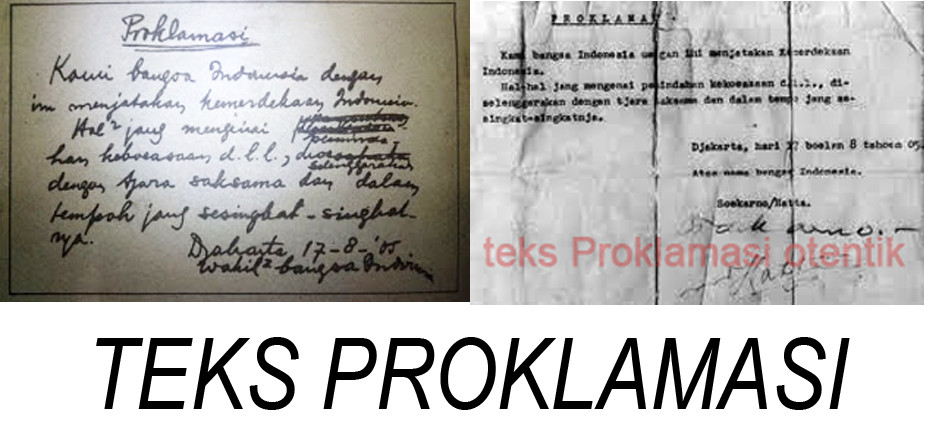 Proklamasi
Kami bangsa Indonesia dengan
ini menjatakan kemerdekaan Indonesia.
Hal² jang mengenai
peminda-
han kekoeasaan d.l.l., 
diselenggarakan
dengan tjara saksama dan dalam
tempoh jang sesingkat-singkat-
nja.
Djakarta 17-8-'05
Wakil² bangsa Indonesia
PROKLAMASI.
Kami bangsa Indonesia dengan ini menjatakan Kemerdekaan
Indonesia.
Hal-hal jang mengenai pemindahan kekoeasaan d.l.l., di-
selenggarakan dengan tjara saksama dan dalam tempo jang se-
singkat-singkatnja.
Djakarta, hari 17 boelan 8 tahoen 05.
Atas nama bangsa Indonesia.
Soekarno/Hatta.
Soekarno.-
Hatta
teks Proklamasi otentik
TEKS PROKLAMASI